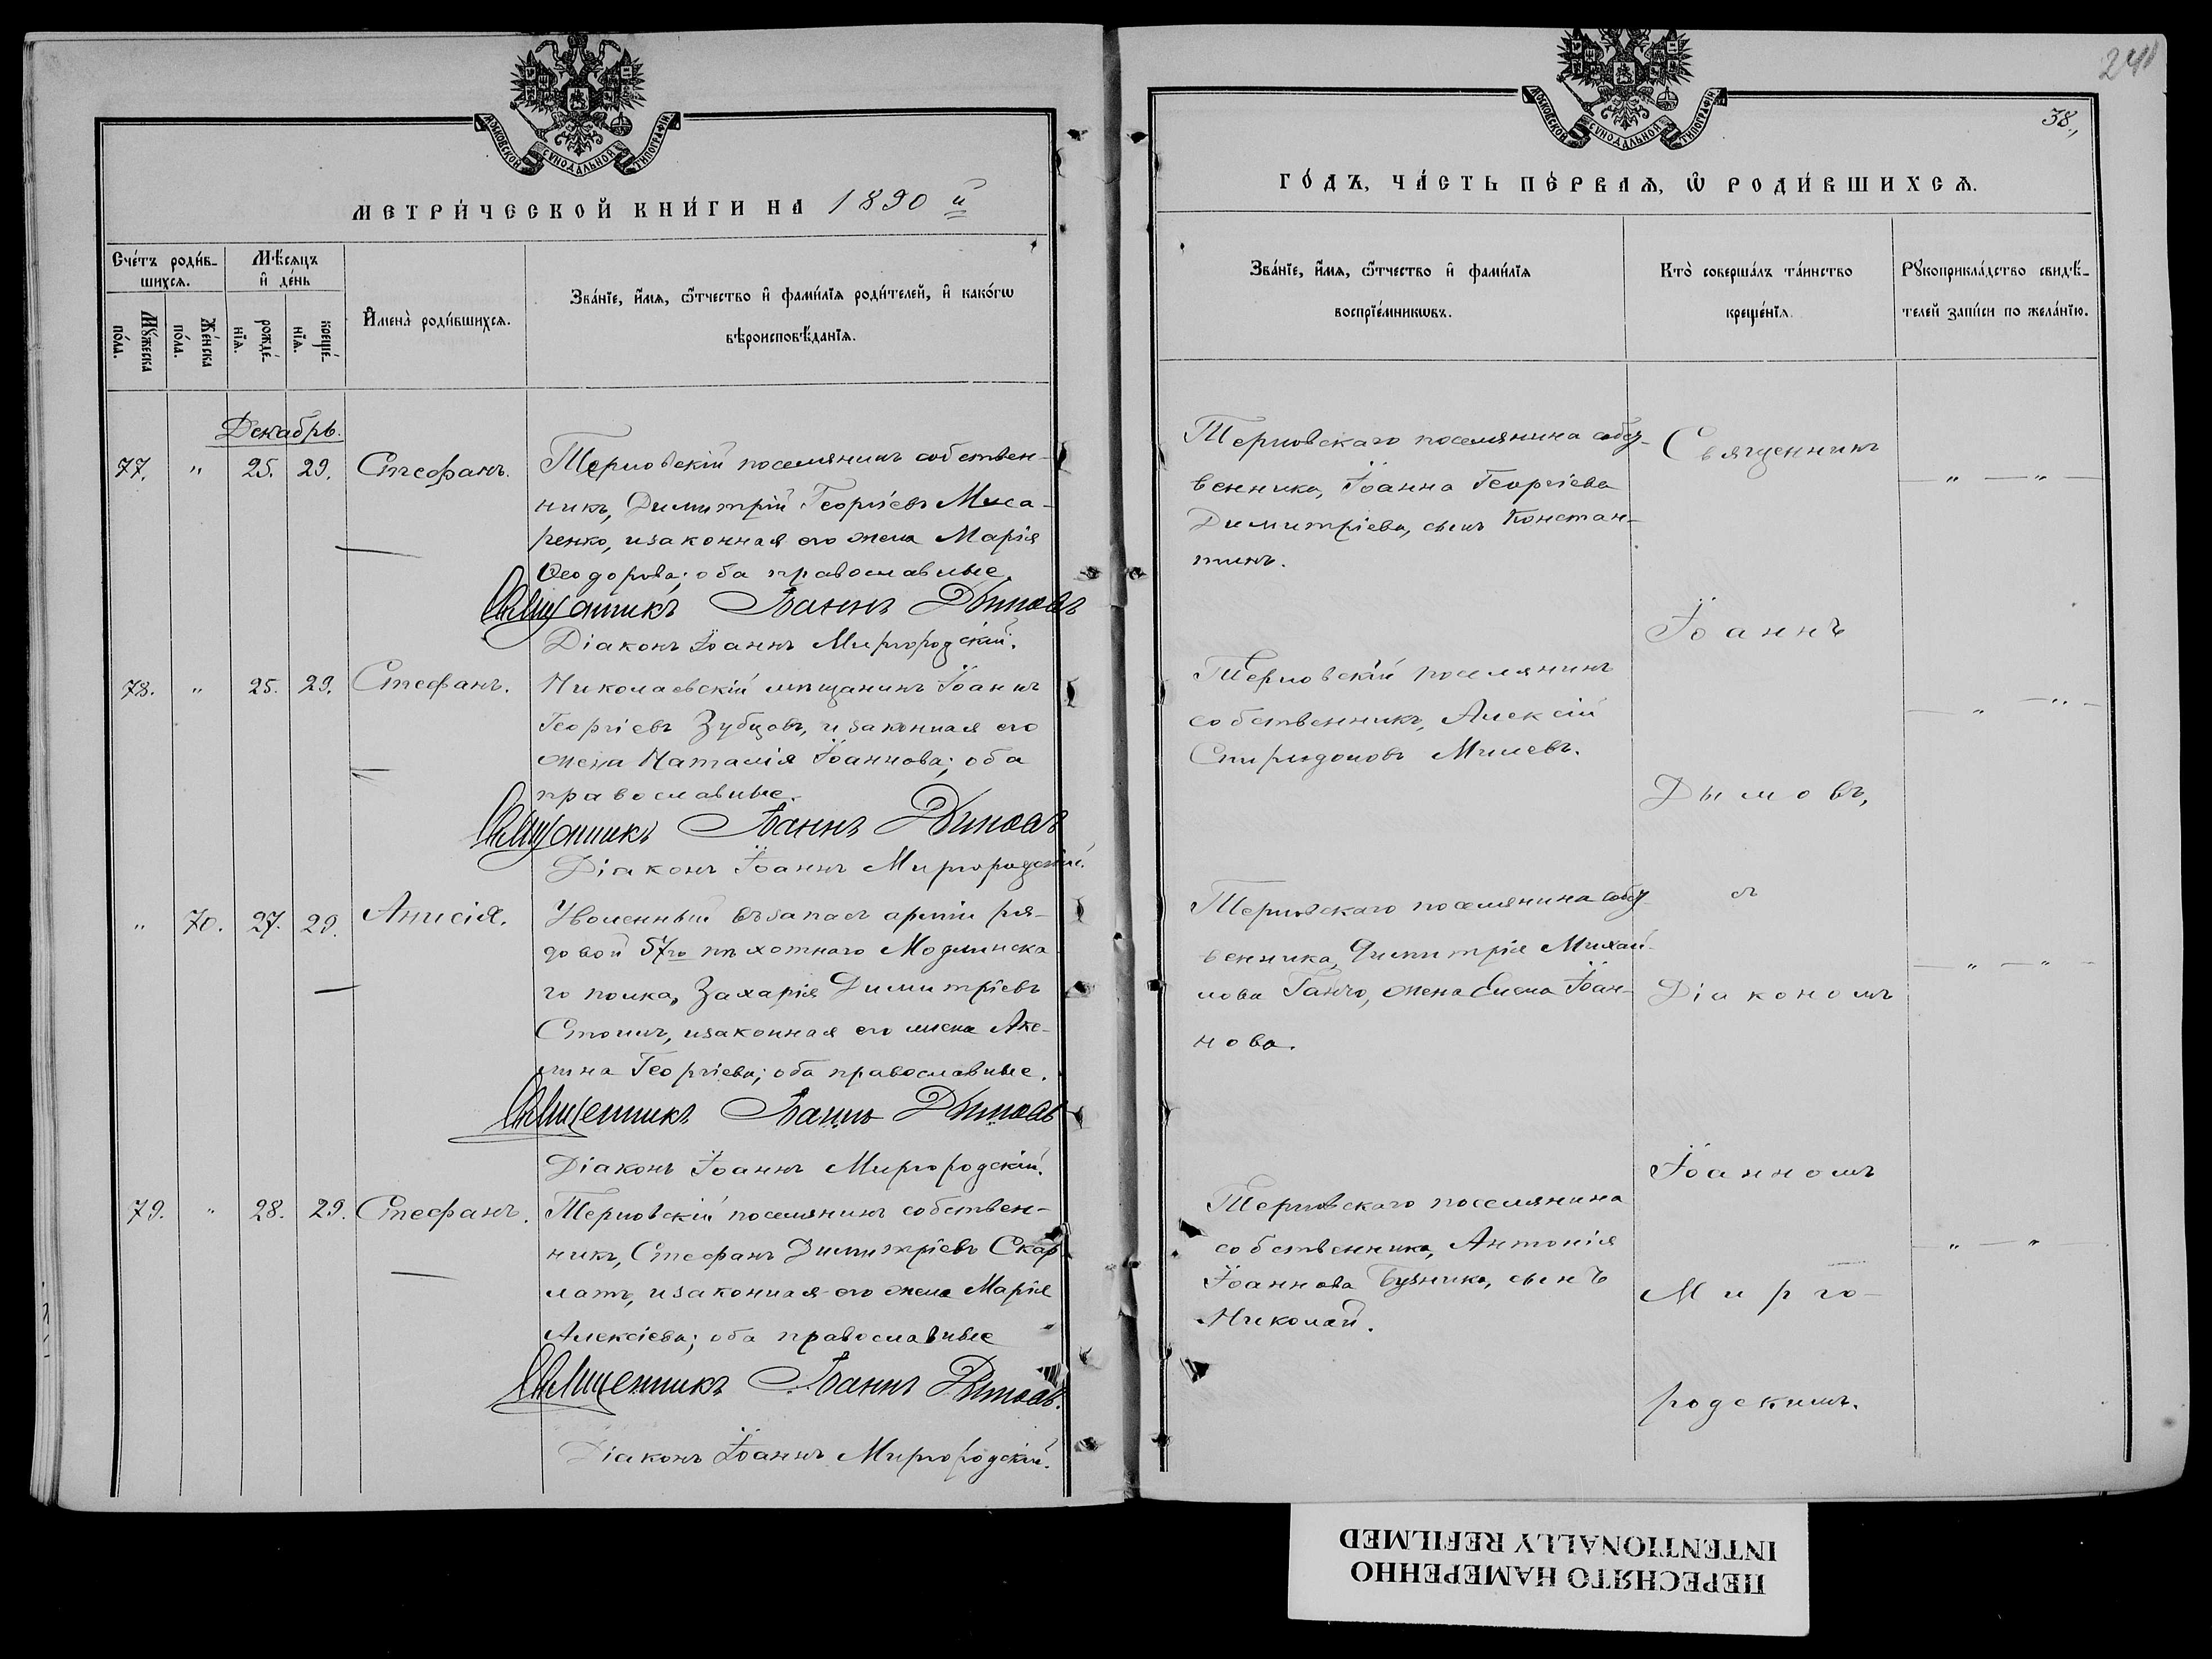 МОСКОВСКОЙ СѴНОДАЛЬНОЙ ТИПОГРАФІИ
МЕТРИ́ЧЕСКОЙ КНИ́ГИ НА 1890 й
Сче́тъ роди́в-
шихсѧ.
Мѣ́сѧцъ
и҆ де́нь
Мꙋ́жеска
по́ла.
Же́нска
по́ла.
рожде́-
нїѧ.
креще́-
нїѧ.
И҆мена̀ роди́вшихсѧ.
Зва́нїе, и҆́мѧ, ѻ҆́тчество и҆ фами́лїѧ роди́телей, и҆ како́гѡ
вѣроисповѣ́данїѧ.
Декабрь.
77. " 25. 29. Стефанъ.
Терновскій поселянинъ собствен-
никъ, Димитрій Георгіевъ Мака-
ренко, и законная его жена Марія
Ѳеодорова; оба православные.
Священникъ Іоаннъ Дымовъ
Діаконъ Іоаннъ Миргородскій.
78. " 25. 29. Стефанъ.
Николаевскій мѣщанинъ Іоаннъ
Георгіевъ Зубцовъ, и законная его
жена Наталія Іоаннова; оба
православные.
Священникъ Іоаннъ Дымовъ
Діаконъ Іоаннъ Миргородскій.
" 70. 27. 29. Анисія.
Уволенный въ запасъ арміи ря-
довой 57го пѣхотнаго Модлинска-
го полка, Захарія Димитріевъ
Стоинъ, и законная его жена Аке-
лина Георгіева; оба православные.
Священникъ Іоаннъ Дымовъ
Діаконъ Іоаннъ Миргородскій.
79. " 28. 29. Стефанъ.
Терновскій поселянинъ собствен-
никъ, Стефанъ Димитріевъ Скар-
латъ, и законная его жена Марія
Алексіева; оба православные
Священникъ Іоаннъ Дымовъ.
Діаконъ Іоаннъ Миргородскій.
241
38.
МОСКОВСКОЙ СѴНОДАЛЬНОЙ ТИПОГРАФІИ
ГО́ДЪ, ЧА́СТЬ ПЕ́РВАѦ, Ѽ РОДИ́ВШИХСѦ.
Зва́нїе, и҆́мѧ, ѻ҆́тчество и҆ фами́лїѧ
воспрїе́мникѡвъ.
Кто̀ соверша́лъ та́инство
креще́нїѧ.
Рꙋкоприкла́дство свидѣ́-
телей за́писи по жела́нїю.
Терновскаго поселянина собст-
венника, Іоанна Георгіева
Димитріева, сынъ Констан-
тинъ.
Терновскій поселянинъ
собственникъ, Алексій
Спиридоновъ Милевъ.
Терновскаго поселянина собст-
венника, Димитрія Михай-
лова Ганчо, жена Елена Іоан-
нова.
Терновскаго поселянина
собственника, Антонія
Іоаннова Бузника, сынъ
Николай.
Священникъ
Іоаннъ
Дымовъ,
съ
Діакономъ
Іоанномъ
Мирго-
родскимъ.
" "
" "
" "
" "
ПЕРЕСНЯТО НАМЕРЕННО
INTENTIONALLY REFILMED